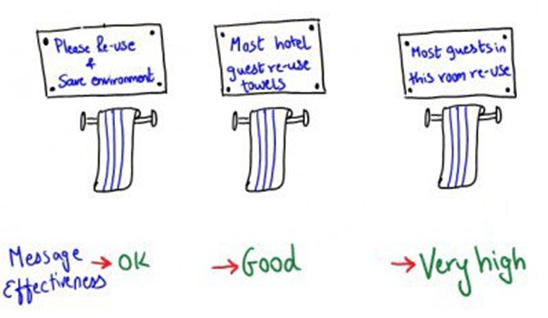 Please Re-use
&
Save environment
Most hotel
guest re-use
towels
Most guests in
this room re-use
Message
Effectiveness
→ OK
→ Good
→ Very high